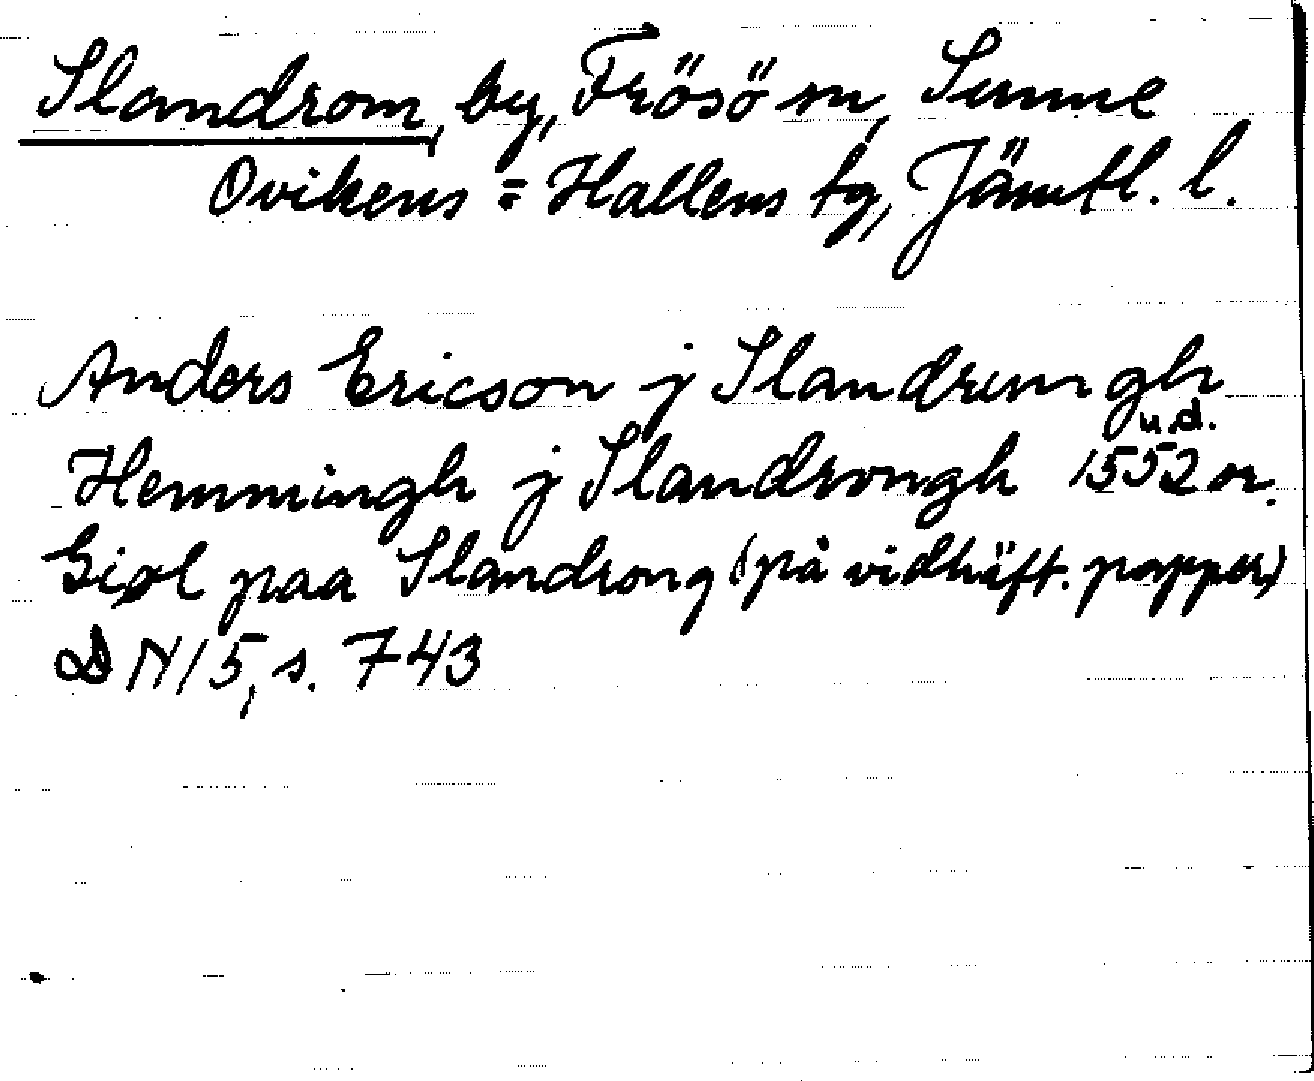 Slandrom, by, Frösö sn, Sunne
Ovikens = Hallens tg, Jämtl. l.
Anders Ericson j Slandrungh
u.d.
Hemmingh j Slandrongh 1552 or.
Giøl paa Slandrong (på vidhäft. papper)
DN 15, s. 743